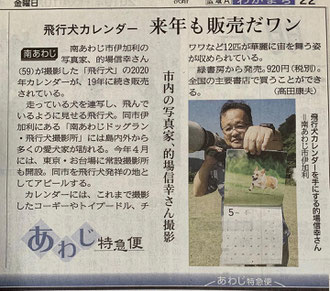 金曜日
22
飛行犬カレンダー 来年も販売だワン
南あわじ 南あわじ市伊加利の
写真家、的場信幸さん
(59)が撮影した「飛行犬」の2020
年カレンダーが、19年に続き販売
されている。
走っている犬を連写し、飛んで
いるように見せる飛行犬。同市伊
加利にある「南あわじドッグラン
グ・飛行犬撮影所」には島内外から
多くの愛犬家が訪れる。今年4月
には、東京・お台場に常設撮影所
も開設。同市を飛行犬発祥の地と
してアピールする。
カレンダーには、これまで撮影し
たコーギーやトイプードル、チ
ワワなど12匹が華麗に宙を舞う姿
が収められている。
緑書房から発売。920円(税別)。
全国の主要書店で買うことができ
る。(高田康夫)
市内の写真家、的場信幸さん撮影
飛行犬カレンダーを手にする的場信幸さん
=南あわじ市伊加利
5
あわじ特急便
あわじ特急便